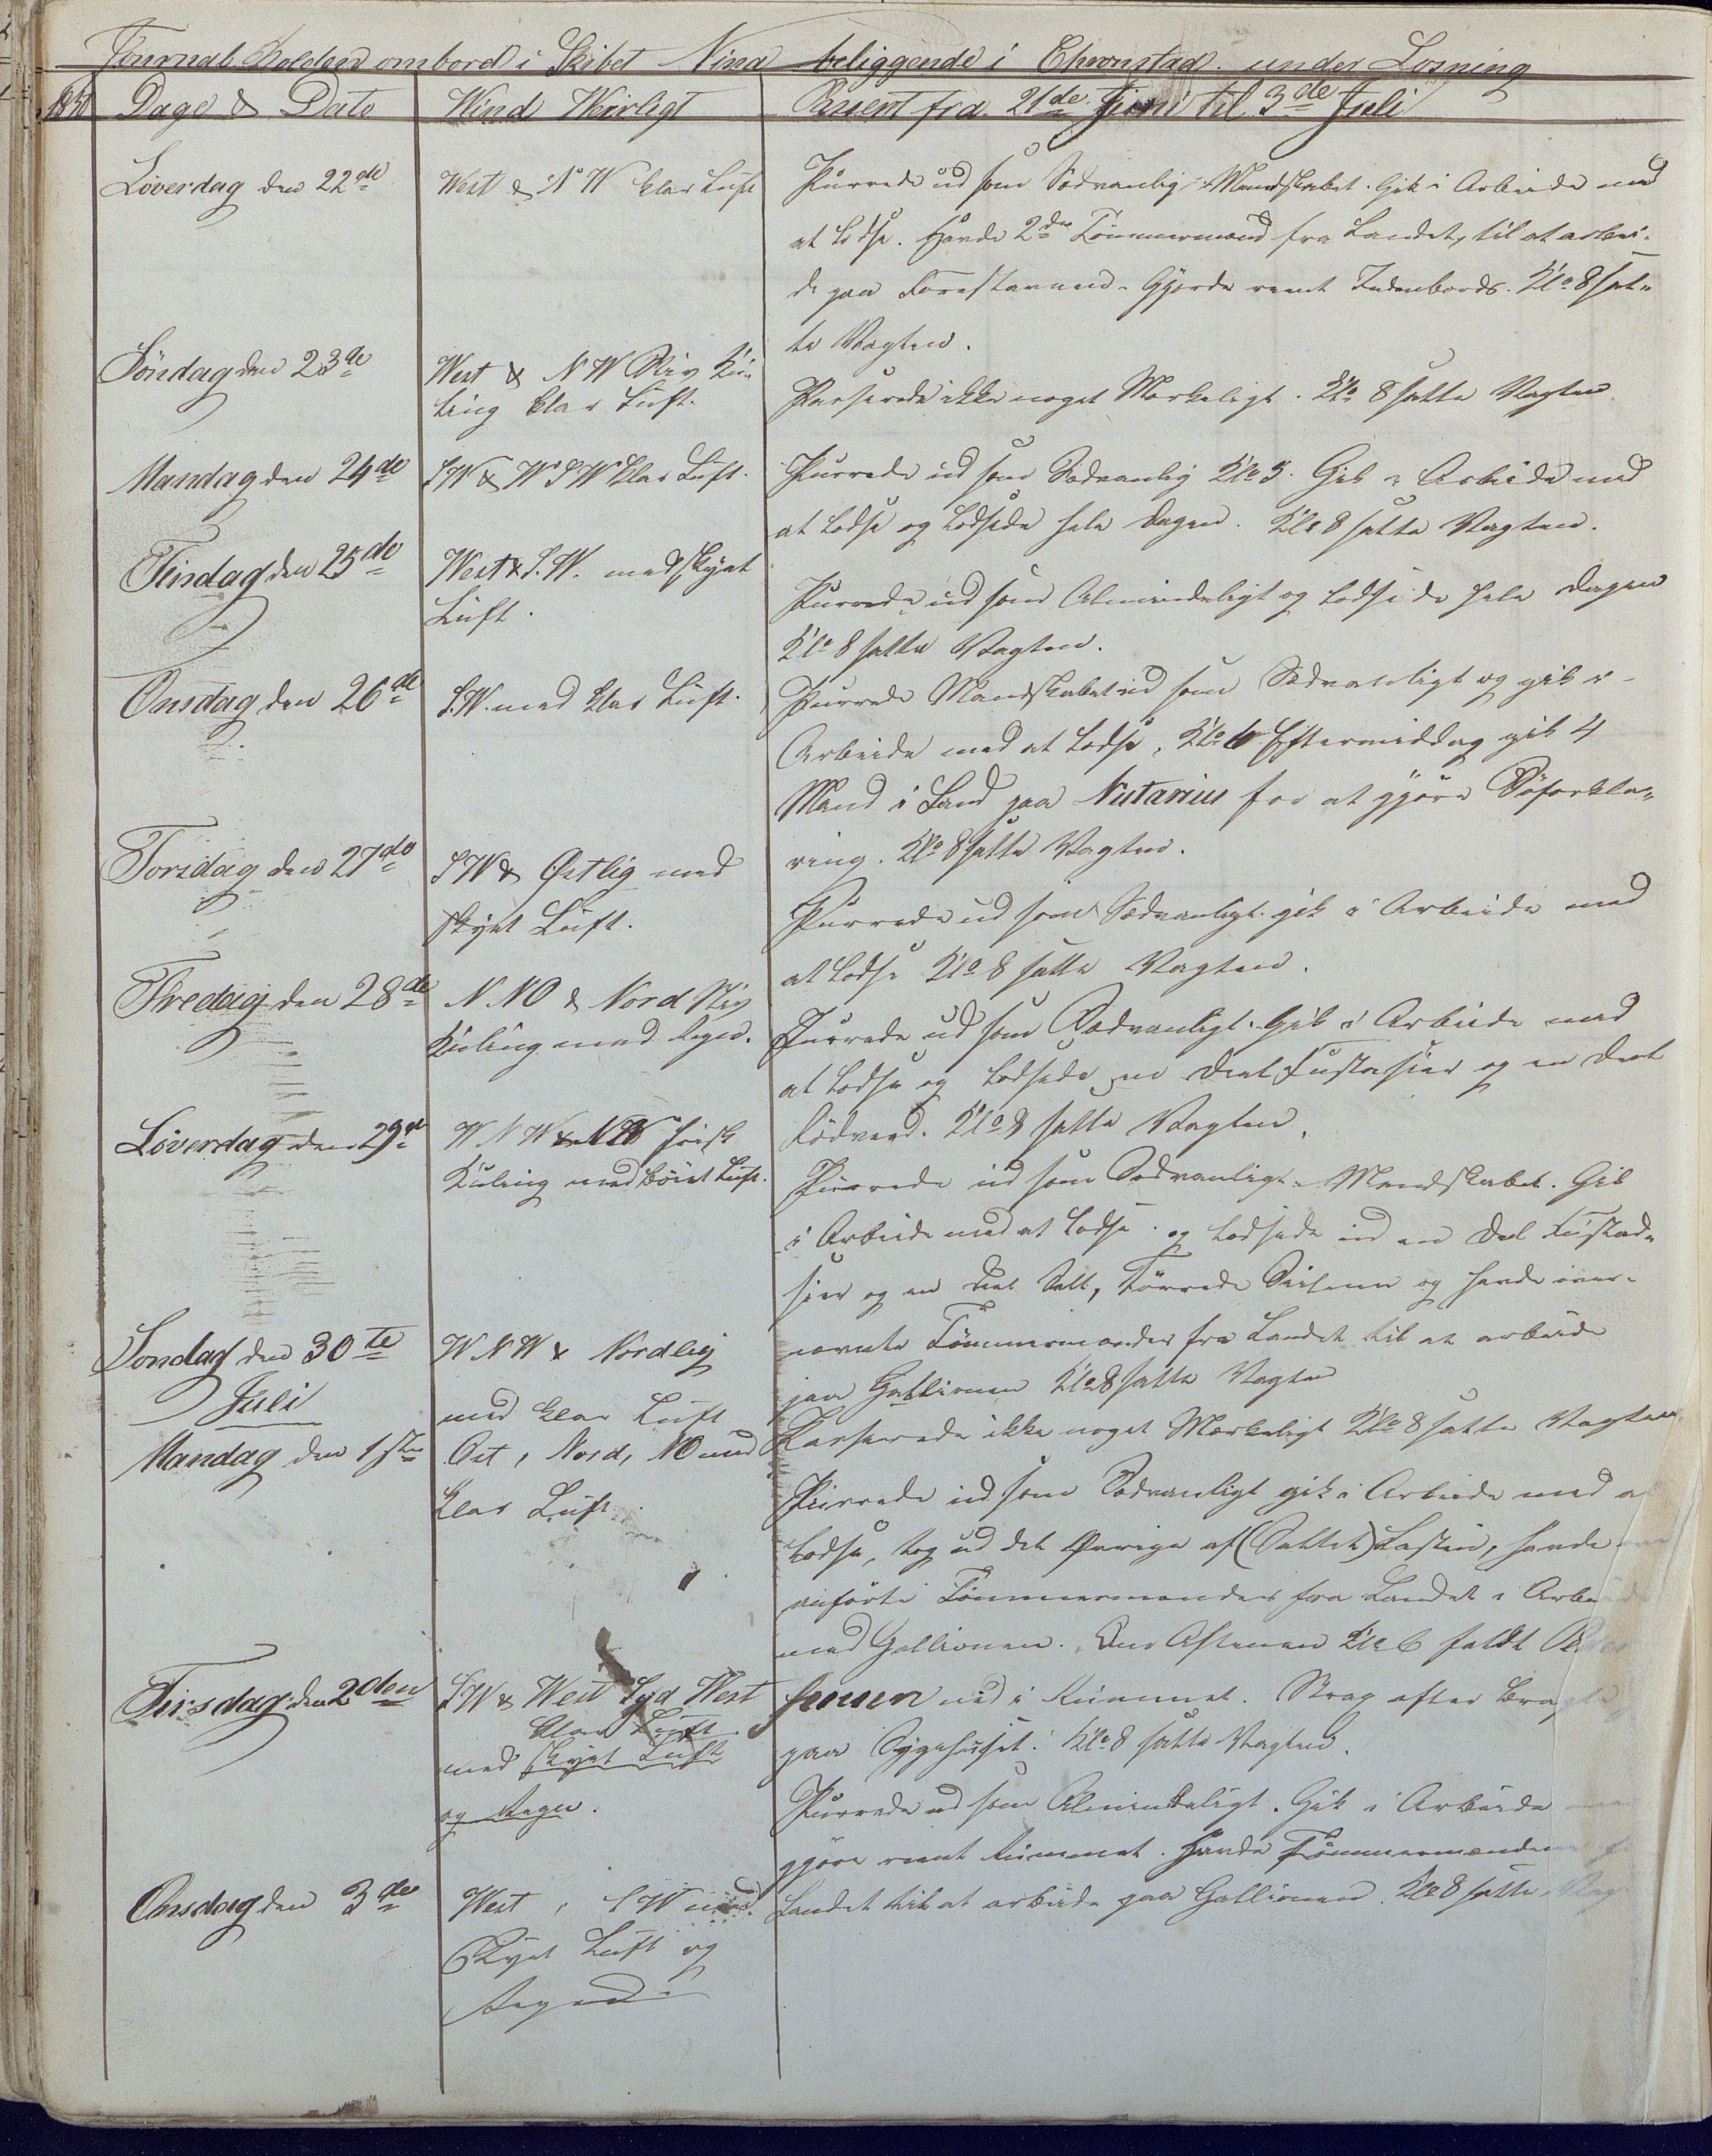 Journal Holden ombord i Skibet Nina beliggende i Chronstad. under Losning
1850 Dage & Dato Wind Weirligt Passert fra 21de Juni til 3de Juli
Löverdag den 22de
West & NW klar Luft
Purrede ud som Sædvanlig Mandskabet. Gik i Arbeide med
at lodse. Havde 2de Tömmermænd fra Landet, til at arbei-
de paa Forestavnen. Gjorde reent Indenbords. Klo 8 sat-
te Vagten.
Söndag den 23de
West & NW Stiv Ku-
ling klar Luft.
Passerede ikke noget Mærkeligt. Klo 8 satte Vagten
Mandag den 24de
SW & WSW klar Luft.
Purrede ud som Sædvanlig Klo 5. Gik i Arbeide med
at lodse og lodsede hele Dagen. Klo 8 satte Vagten.
Tirsdag den 25de
West & S.W. med skyet
Luft.
Purrede ud som Almindeligt og lodsede hele Dagen
Klo 8 satte Vagten.
Onsdag den 26de
S.W. med klar Luft.
Purrede Mandskabet ud som Sædvanligt og gik i
Arbeide med at lodse, Klo 6 Eftermiddag gik 4
Mand i Land paa Nutarius for at gjöre Söforkla-
ring. Klo 8 satte Vagten.
Torsdag den 27de
SW & Østlig med
skyet Luft.
Purrede ud som Sædvanligt gik i Arbeide med
at lodse Klo 8 satte Vagten.
Fredag den 28de
NNO & Nord Stiv
Kuling med Regn.
Purrede ud som Sædvanligt. Gik i Arbeide med
at lodse og lodsede en Deel Fustasier og en Deel
Rödved. Klo 8 satte Vagten.
Löverdag den 29de
WNW & NW frisk
Kuling med böiet Luft.
Purrede ud som Sædvanligt Mandskabet. Gik
i Arbeide med at lodse og lodsede ud en Deel Fustad-
sier og en Deel Salt, törrede Seilene og havde oven-
nævnte Tömmermænder fra Landet til at arbeide
paa Gallionen Klo 8 satte Vagten
Söndag den 30te
WNW & Nordlig
med klar Luft
Passerede ikke noget Mærkeligt Klo 8 satte Vagten
Juli
Mandag den 1ste
Ost, Nord, NO med
klar Luft.
Purrede ud som Sædvanligt gik i Arbeide med a
lodse, tog ud det Øvrige af (Saltet) Lasten, havde
anförte Tömmermænder fra Landet i Arbeide
med Gallionen. Om Aftenen Klo 6 faldt
nsen ned i Rummet. Strax efter bragt
paa Sygehuset. Klo 8 satte Vagten.
Tirsdag den 2den
SW & West Syd West
klar Luft
med skyet Luft
og Regn.
Purrede ud som Almindeligt. Gik i Arbeide
gjöre reent Rummet. Havde Tömmermænden
Landet til at arbeide paa Gallionen. Klo 8 satte Vag
Onsdag den 3de
West, SW med
Skyet Luft og
Regn.